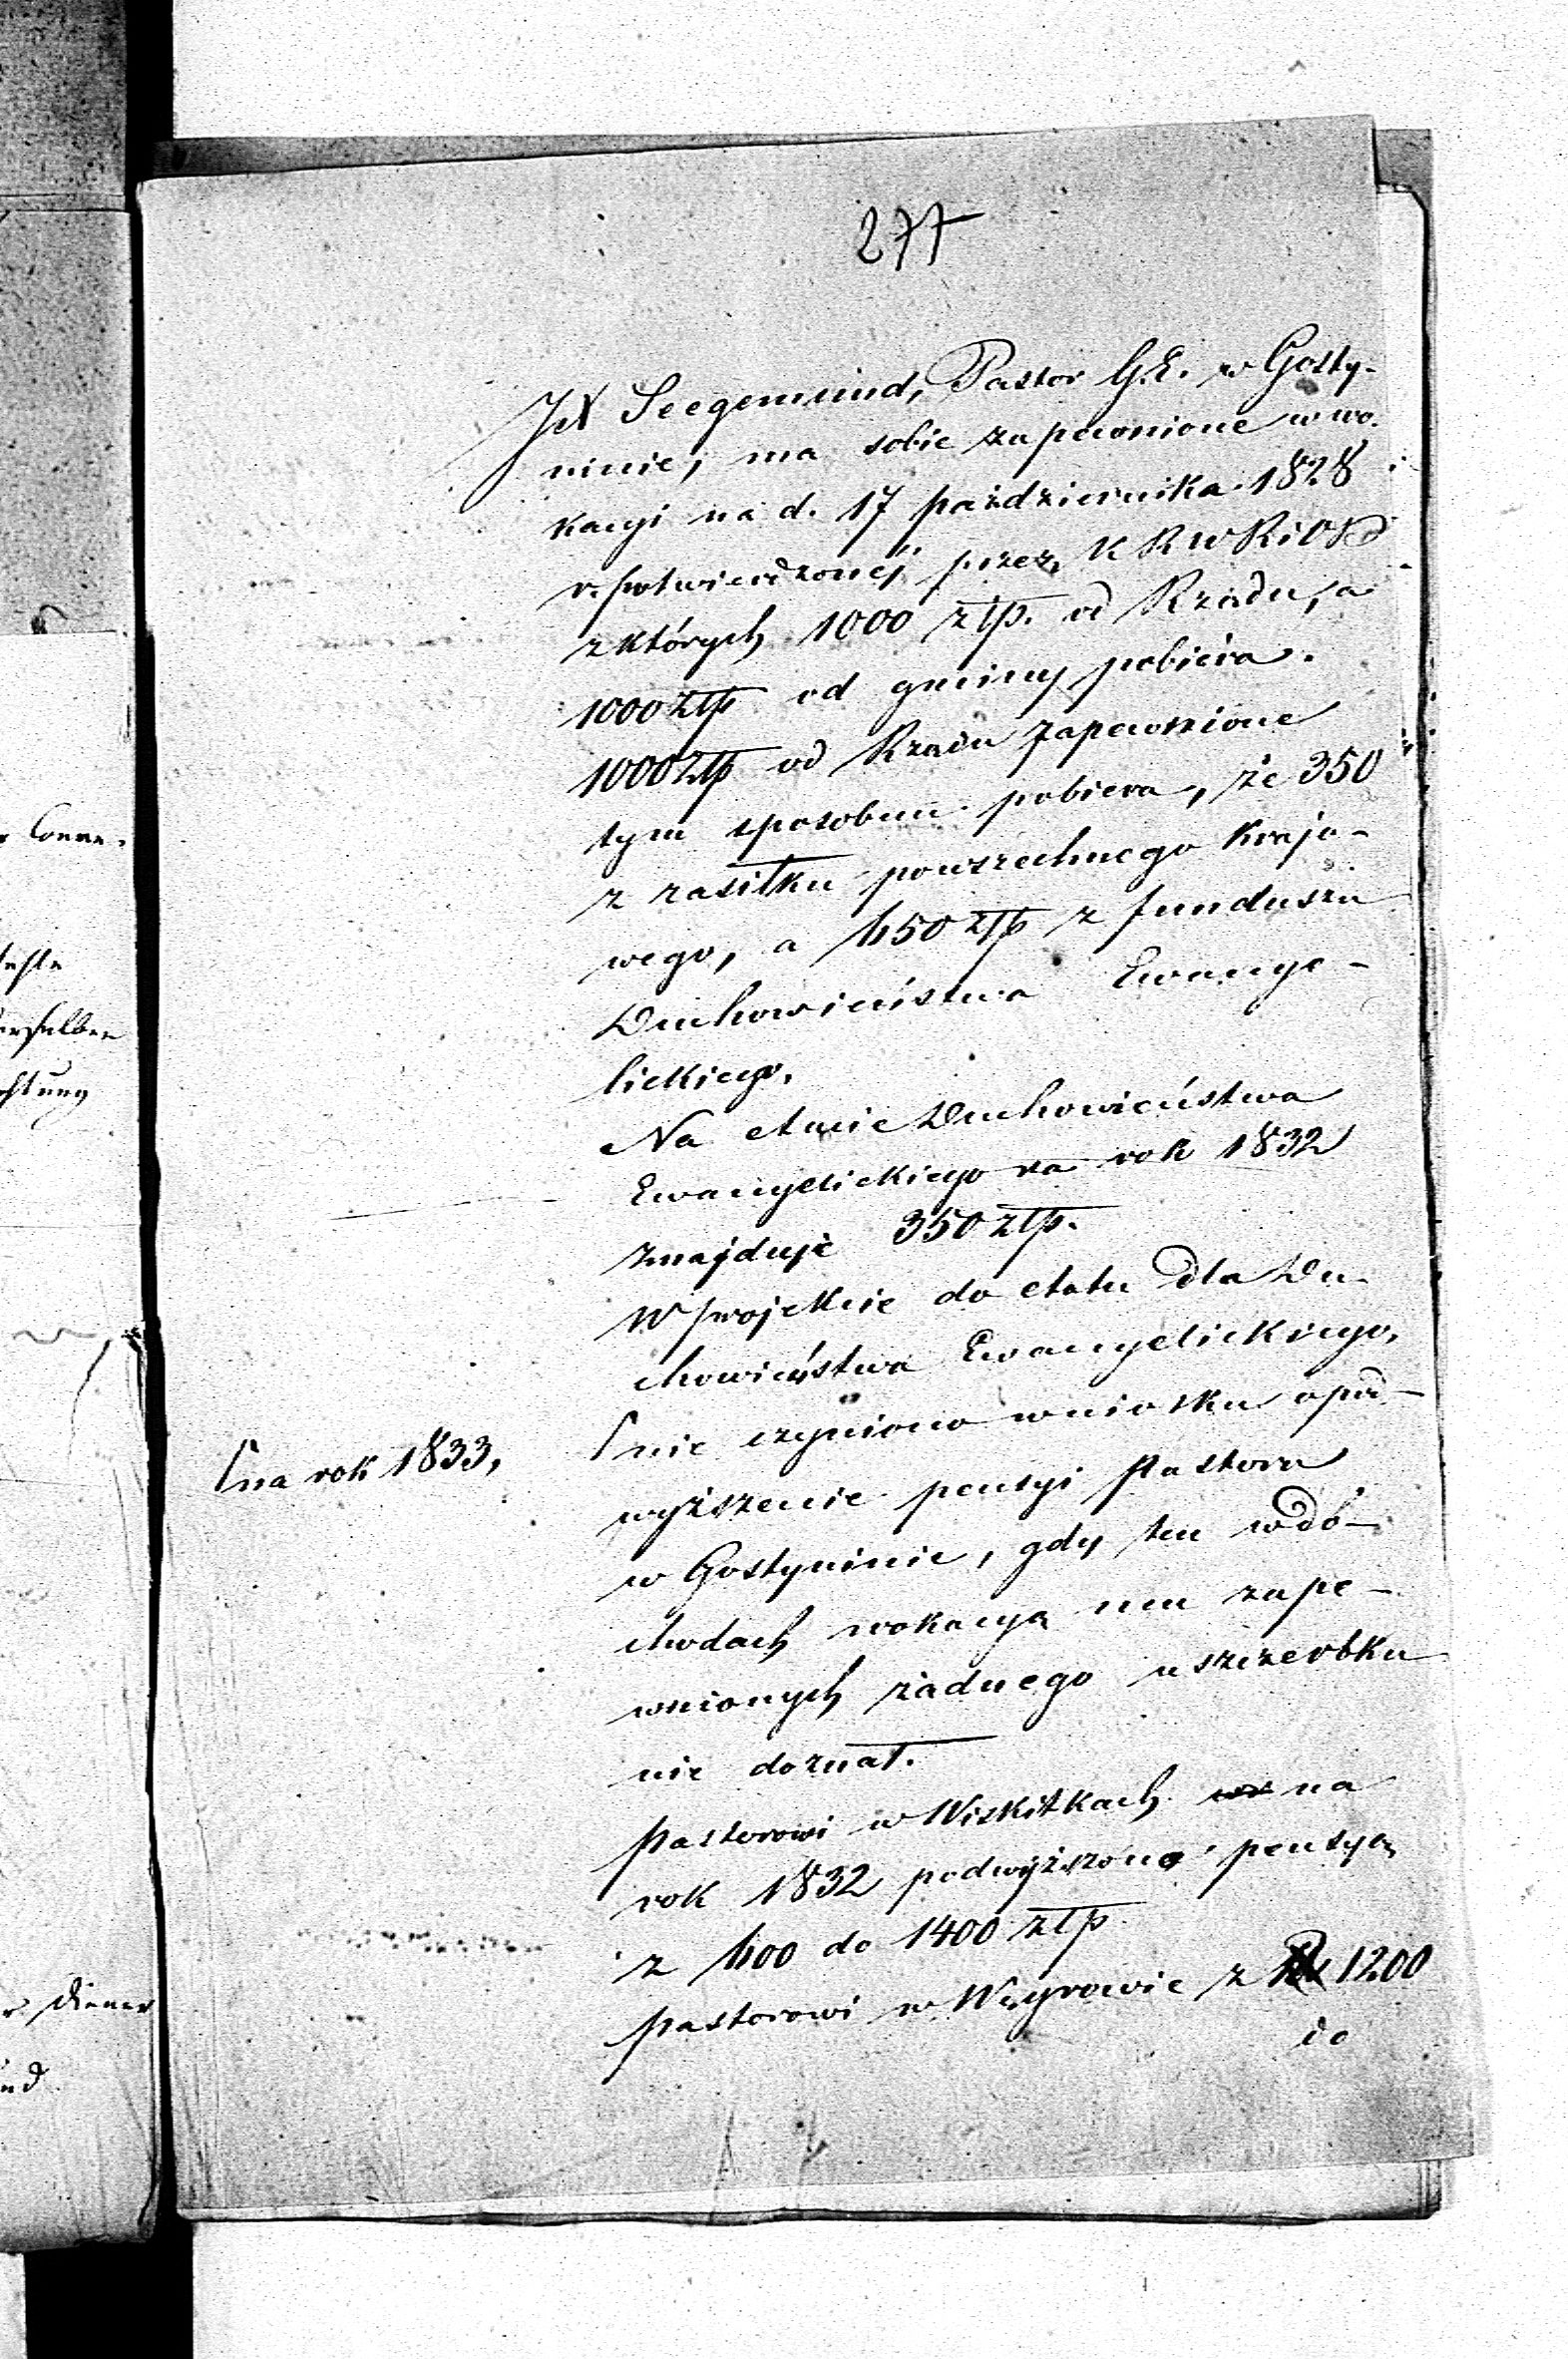 277
JX Seegemund, Pastor G.E. w Gosty-
ninie, ma sobie zapewnione w wo-
kacyi na d. 17 października 1828
r. potwierdzonéj przez K R W R i O P
z których 1000 złp. od Rządu, a
1000 złp od gminy pobiéra.
1000 złp od Rządu zapewnione
tym sposobem pobiera, że 350
z zasiłku powszechnego krajo-
wego, a 650 złp z funduszu
Duchowieństwa Ewange-
lickiego.
Na etacie Duchowieństwa
Ewangelickiego na rok 1832
znajduje 350 złp.
W projekcie do etatu dla Du-
chowieństwa Ewangelickiego,
⌈na rok 1833,
⌈nie czyniono wniosku o pod-
wyższenie pensyi Pastora
w Gostyninie, gdy ten w do-
chodach wokacyą mu zape-
wnionych żadnego uszczerbku
nie doznał.
Pastorowi w Wiskitkach na
rok 1832 podwyższono pensyą
z 600 do 1400 złp
Pastorowi w Węgrowie z 1200